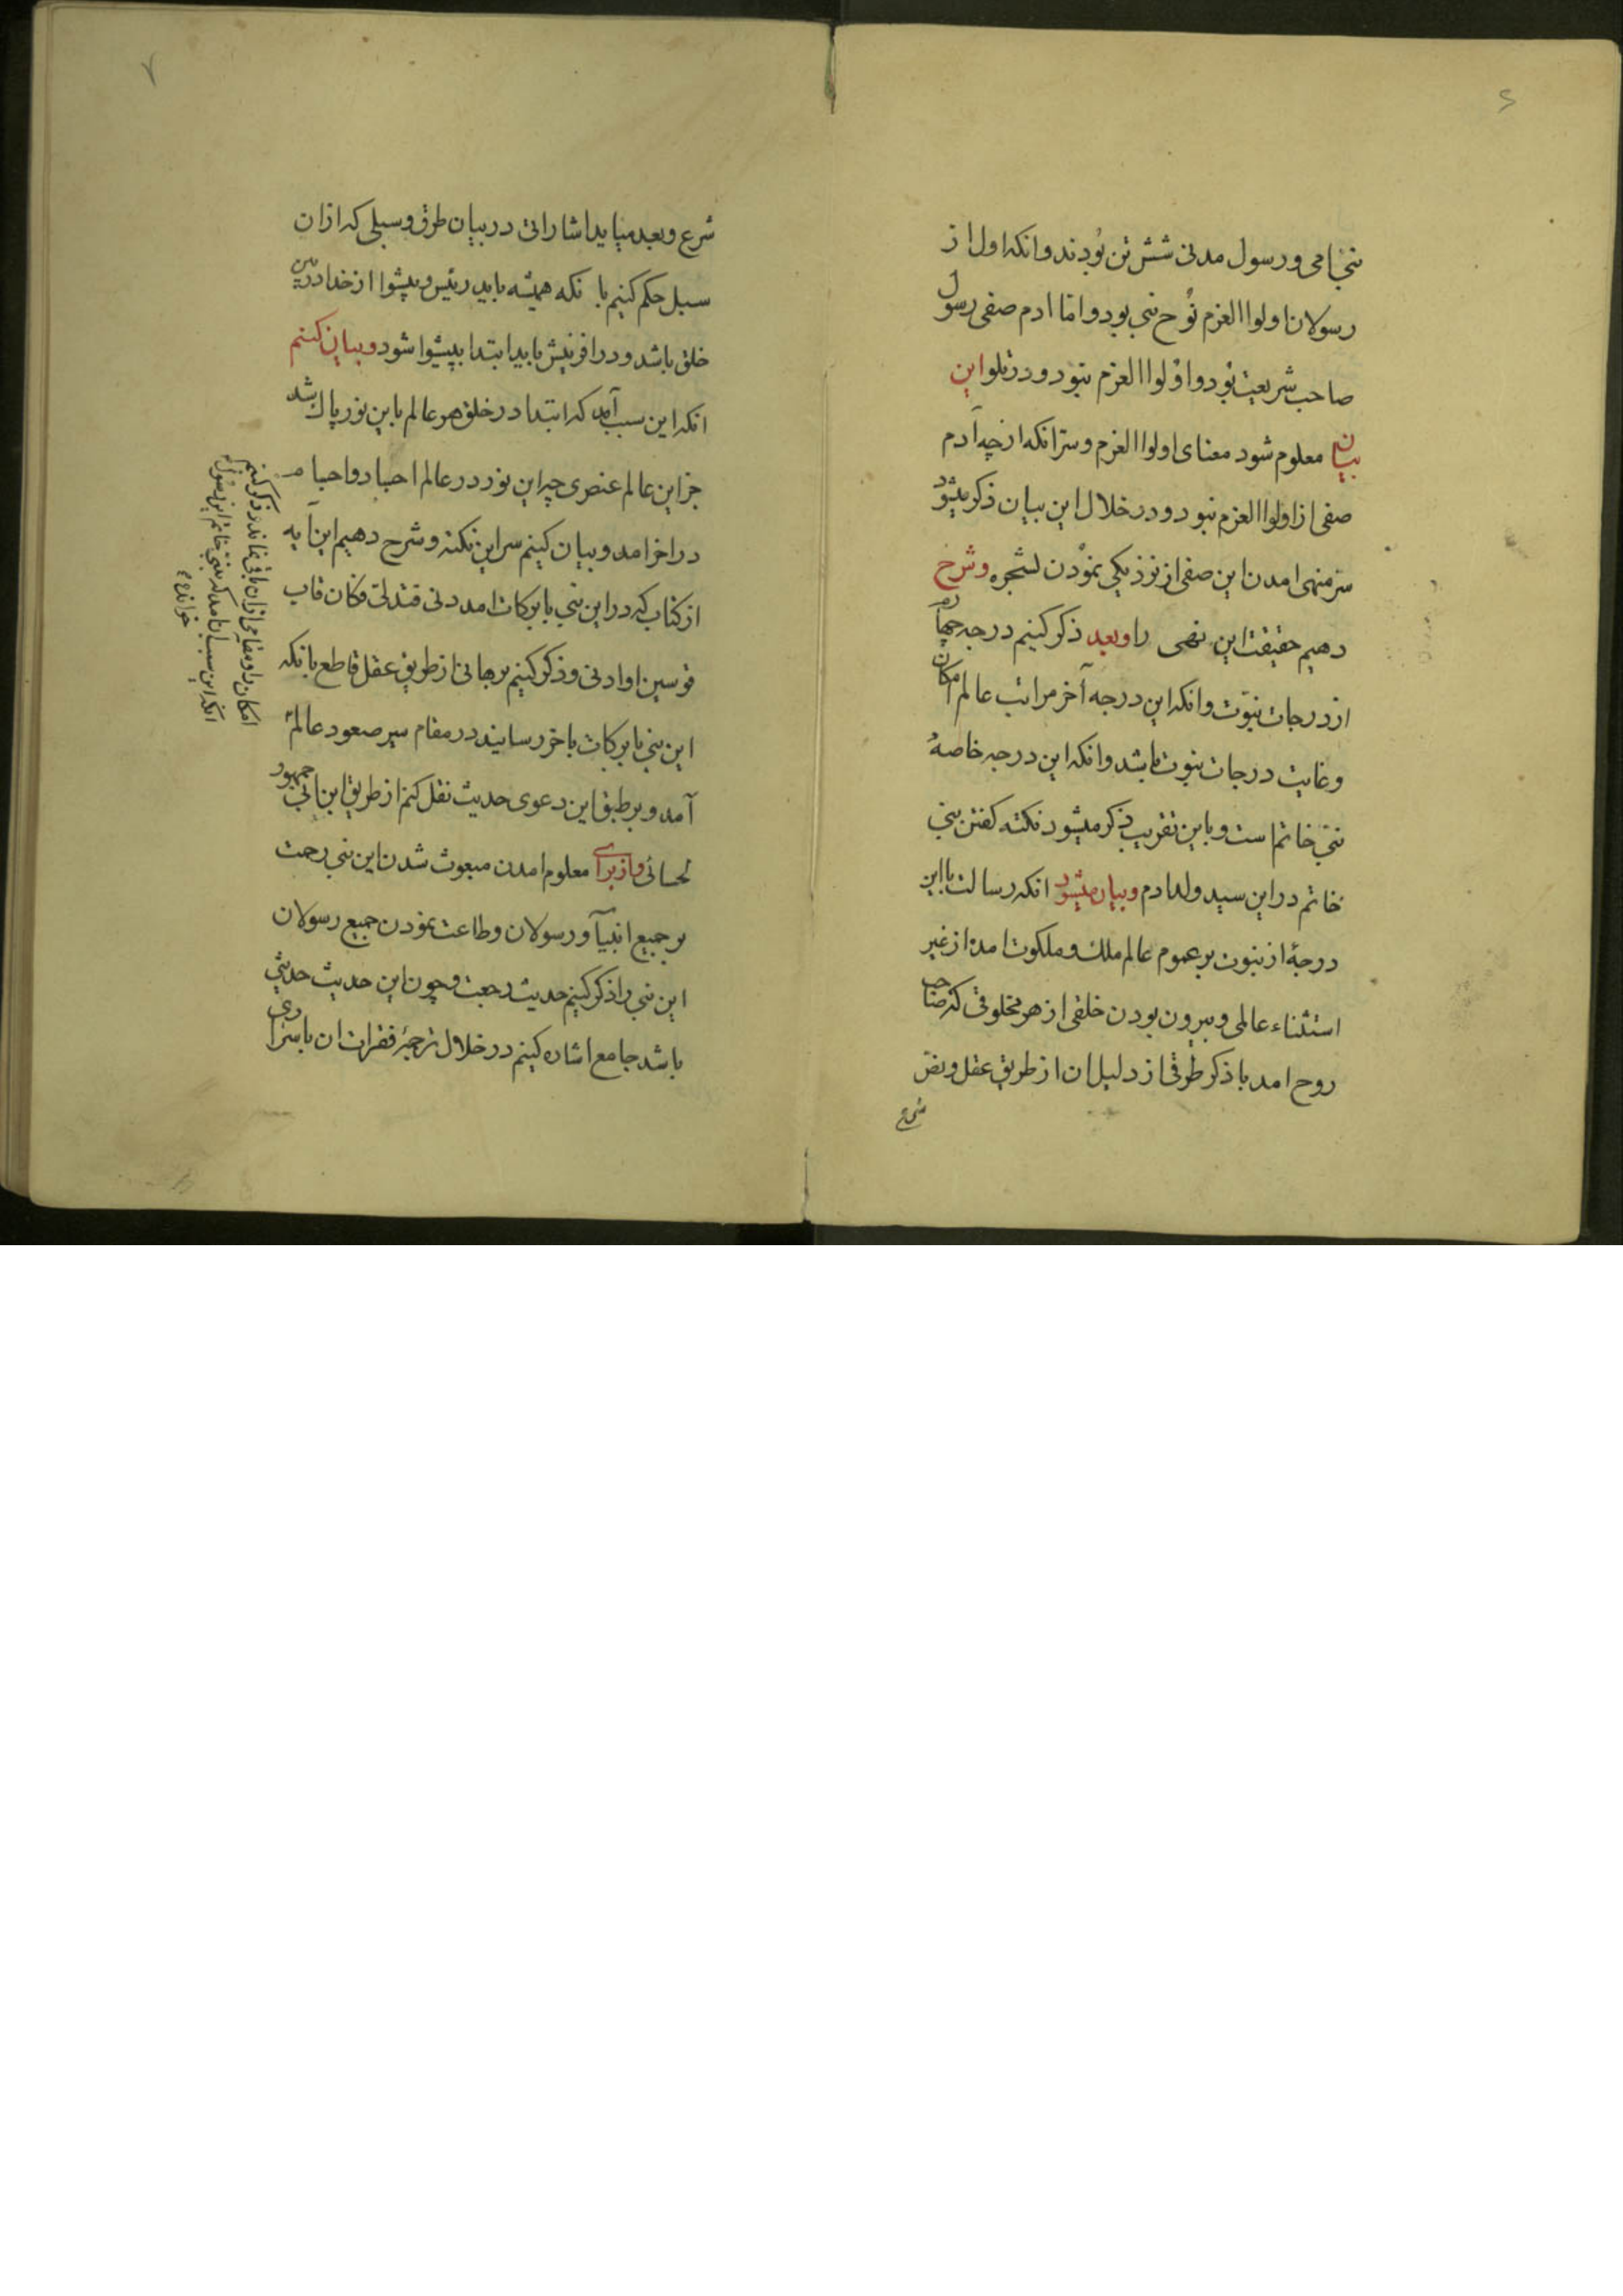 ۶
نبی امی و رسول مدنی شش تن بودند و انکه اول از
رسولان اولوا العزم نوح نبی بود و اما ادم صفی رسول
صاحب شریعت بود و اولوا العزم نبود و در تلو این
بیان معلوم شود معنای اولوا العزم و سر انکه از چه آدم
صفی از اولوا العزم نبود و در خلال این بیان ذکر میشود
سر منهی امدن این صفی از نزدیکی نمودن لشجره و شرح
دهیم حقیقت این نهی را و بعد ذکر کنیم درجه چهارم
از درجات نبوت و انکه این درجه آخر مراتب عالم امکان
و غایت درجات نبوت باشد و انکه این درجه خاصهٔ
نبی خاتم است و باین تقریب ذکر میشود نکته کفتن نبی
خاتم در این سید ولد ادم و بیان میشود انکه رسالت با این
درجهٔ از نبوت بر عموم عالم ملک و ملکوت امده از غیر
استثناء عالمی و بیرون بودن خلقی از هر مخلوقی که صاحب
روح امد با ذکر طرقی از دلیل ان از طریق عقل و نص
شرع
۷
شرع و بعد میاید اشاراتی در بیان طرق و سبلی که ازان
سبل حکم کنیم با نکه همیشه باید رئیس و پیشوا از خدا در بین
خلق باشد و در افرینش باید ابتدا بپیشوا شود و بیان کنیم
انکه این سبب آمد که ابتدا در خلق هر عالم باین نور پاک شد
جز این عالم عنصری چه این نور در عالم اجساد و اجسام
در اخر امد و بیان کنیم سر این نکته و شرح دهیم این آیه
از کتاب که در این نبی با برکات امد دنی فتدلی فکان قاب
قوسین او ادنی و ذکر کنیم برهانی از طریق عقل قاطع بانکه
این نبی با برکات باخر رسانید در مقام سیر صعود عالم
آمد و بر طبق این دعوی حدیث نقل کنم از طریق ابن ابی جمهور
لحسائی و از برای معلوم امدن مبعوث شدن این نبی رحمت
بر جمیع انبیآ و رسولان و طاعت نمودن جمیع رسولان
این نبی را ذکر کنیم حدیث رجعت و چون این حدیث حدیثی
باشد جامع اشاره کنیم در خلال ترجمهٔ فقرات ان باسراری
امکان را و مقامی ازان باقی نماند و ذکر کنیم
انکه این سبب ان امد که نبی خاتم این رسول
خوانده